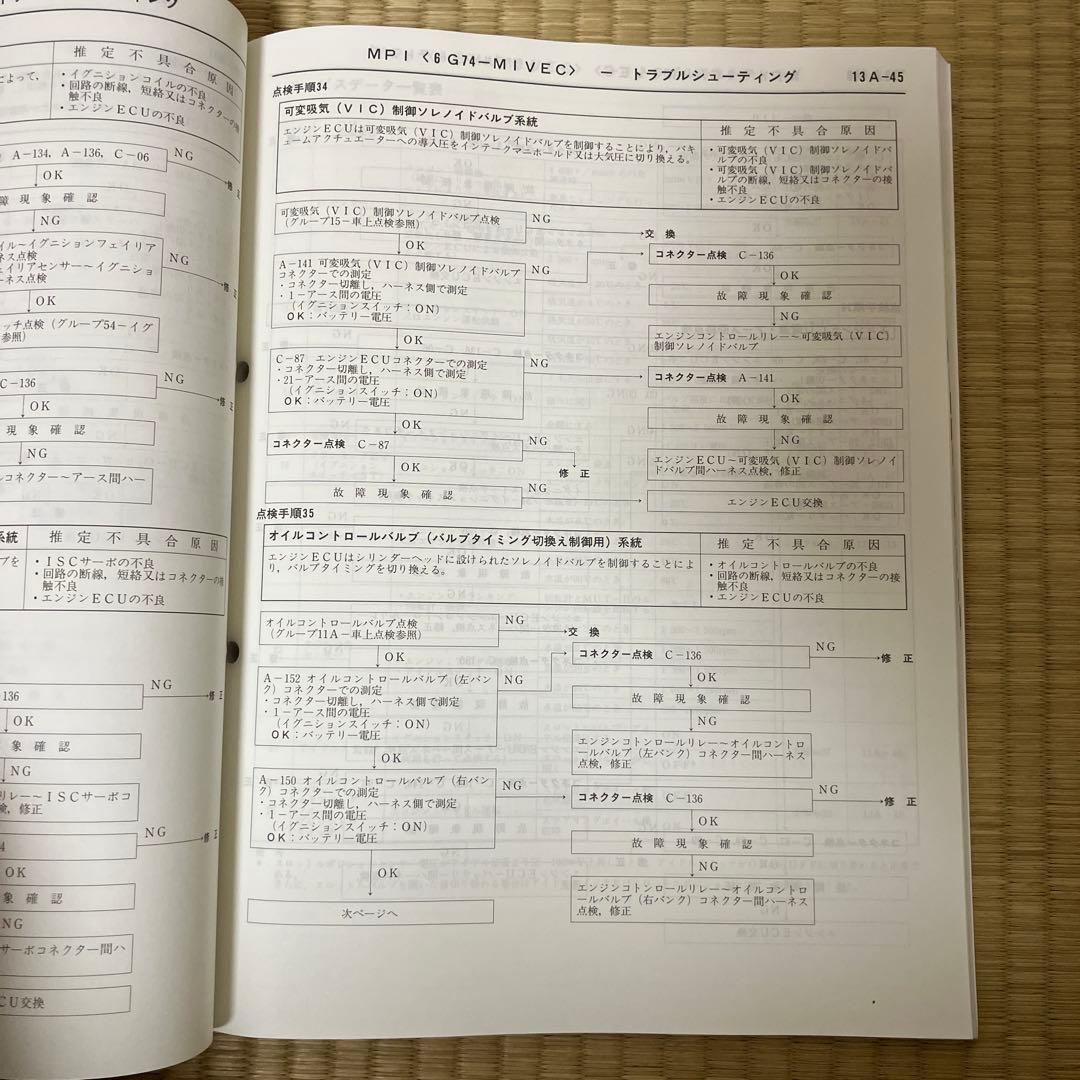 推定不具合原因
によって,
・イグニションコイルの不良
・回路の断線, 短絡又はコネクターの接
触不良
・エンジンECUの不良
A-134, A-136, C-06
NG
修正
OK
障現象確認
NG
イル~イグニションフェイリア
ネス点検
ェイリアセンサー~イグニショ
ーネス点検
NG
修正
OK
ッチ点検(グループ54-イグ
参照)
C-136
NG
修正
OK
現象確認
NG
ルコネクター~アース間ハー
系統
推定不具合原因
ブを
・ISCサーボの不良
・回路の断線, 短絡又はコネクターの接
触不良
・エンジンECUの不良
136
NG
修正
OK
象確認
NG
リレー~ISCサーボコ
検, 修正
4
NG
修正
OK
象確認
NG
サーボコネクター間ハ
CU交換
MPI〈6G74-MIVEC〉 - トラブルシューティング
13A-45
点検手順34
可変吸気(VIC)制御ソレノイドバルブ系統
推定不具合原因
エンジンECUは可変吸気(VIC)制御ソレノイドバルブを制御することにより, バキ
ュームアクチュエーターへの導入圧をインテークマニホールド又は大気圧に切り換える。
・可変吸気(VIC)制御ソレノイドバ
ルブの不良
・可変吸気(VIC)制御ソレノイドバ
ルブの断線, 短絡又はコネクターの接
触不良
・エンジンECUの不良
可変吸気(VIC)制御ソレノイドバルブ点検
(グループ15-車上点検参照)
NG
交換
OK
A-141 可変吸気(VIC)制御ソレノイドバルブ
コネクターでの測定
・コネクター切離し, ハーネス側で測定
・1-アース間の電圧
(イグニションスイッチ:ON)
OK:バッテリー電圧
NG
コネクター点検 C-136
OK
故障現象確認
NG
エンジンコントロールリレー~可変吸気(VIC)
制御ソレノイドバルブ
OK
C-87 エンジンECUコネクターでの測定
・コネクター切離し, ハーネス側で測定
・21-アース間の電圧
(イグニションスイッチ:ON)
OK:バッテリー電圧
NG
コネクター点検 A-141
OK
故障現象確認
NG
エンジンECU~可変吸気(VIC)制御ソレノイ
ドバルブ間ハーネス点検, 修正
OK
コネクター点検 C-87
NG
修正
OK
故障現象確認
NG
エンジンECU交換
点検手順35
オイルコントロールバルブ(バルブタイミング切換え制御用)系統
推定不具合原因
エンジンECUはシリンダーヘッドに設けられたソレノイドバルブを制御することによ
り, バルブタイミングを切り換える。
・オイルコントロールバルブの不良
・回路の断線, 短絡又はコネクターの接
触不良
・エンジンECUの不良
オイルコントロールバルブ点検
(グループ11A-車上点検参照)
NG
交換
OK
A-152 オイルコントロールバルブ(左バン
ク)コネクターでの測定
・コネクター切離し, ハーネス側で測定
・1-アース間の電圧
(イグニションスイッチ:ON)
OK:バッテリー電圧
NG
コネクター点検 C-136
NG
修正
OK
故障現象確認
NG
エンジンコトンロールリレー~オイルコントロ
ールバルブ(左バンク)コネクター間ハーネス
点検, 修正
OK
A-150 オイルコントロールバルブ(右バン
ク)コネクターでの測定
・コネクター切離し, ハーネス側で測定
・1-アース間の電圧
(イグニションスイッチ:ON)
OK:バッテリー電圧
NG
コネクター点検 C-136
NG
修正
OK
故障現象確認
NG
エンジンコトンロールリレー~オイルコントロ
ールバルブ(右バンク)コネクター間ハーネス
点検, 修正
OK
次ページへ